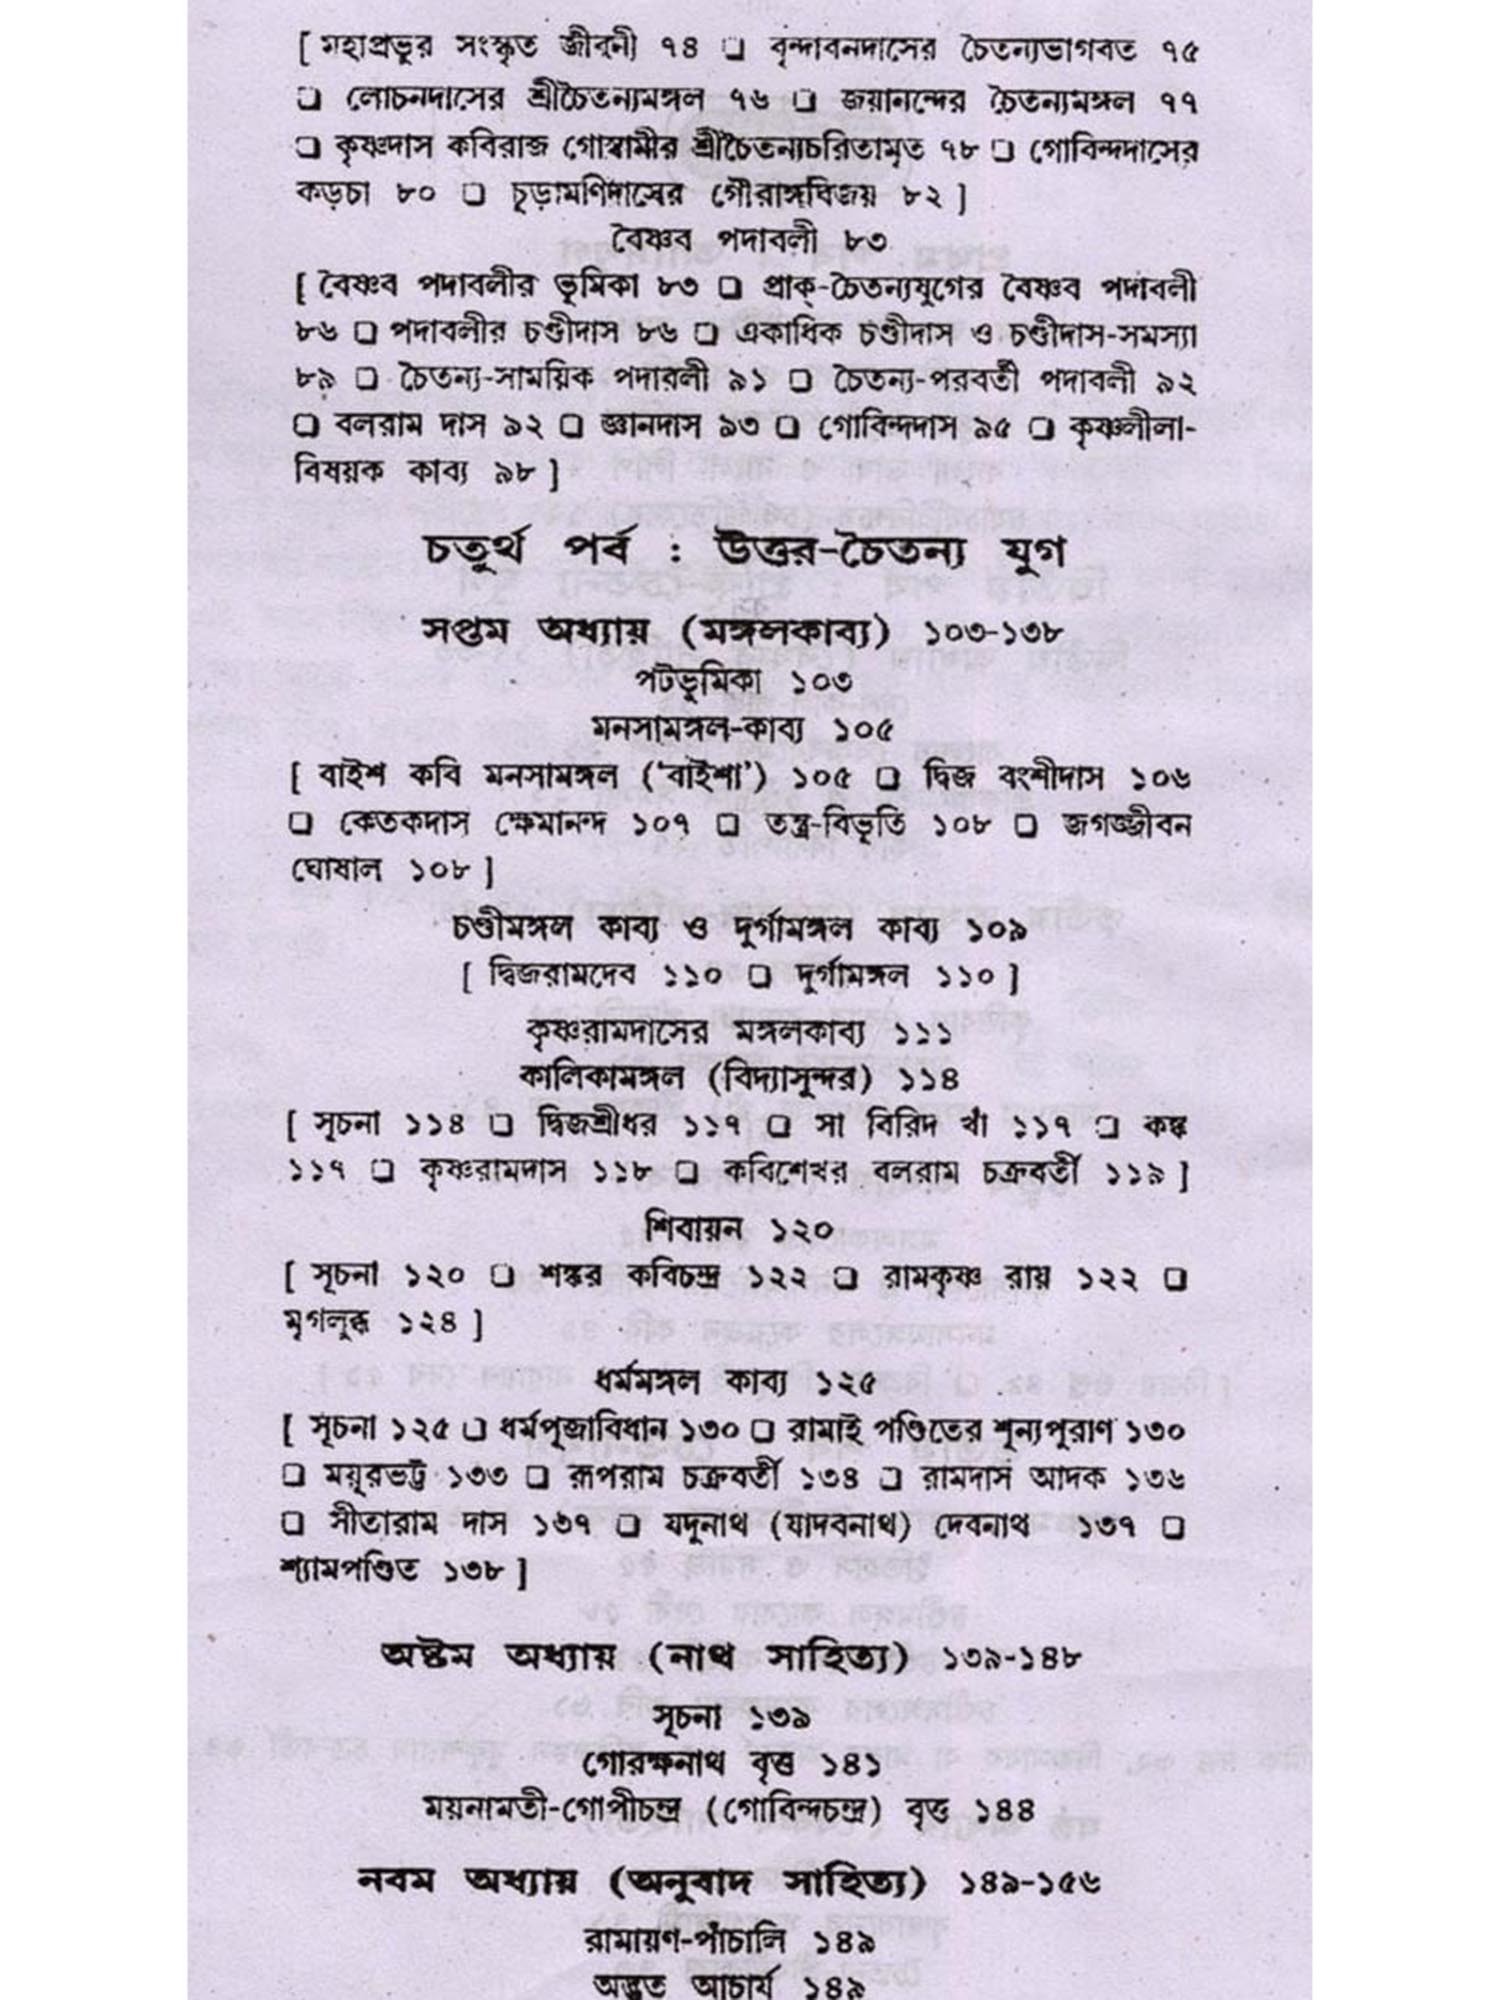 [ মহাপ্রভুর সংস্কৃত জীবনী ৭৪ ❑ বৃন্দাবনদাসের চৈতন্যভাগবত ৭৫
❑ লোচনদাসের শ্রীচৈতন্যমঙ্গল ৭৬ ❑ জয়ানন্দের চৈতন্যমঙ্গল ৭৭
❑ কৃষ্ণদাস কবিরাজ গোস্বামীর শ্রীচৈতন্যচরিতামৃত ৭৮ ❑ গোবিন্দদাসের
কড়চা ৮০ ❑ চূড়ামণিদাসের গৌরাঙ্গবিজয় ৮২ ]
বৈষ্ণব পদাবলী ৮৩
[ বৈষ্ণব পদাবলীর ভূমিকা ৮৩ ❑ প্রাক্-চৈতন্যযুগের বৈষ্ণব পদাবলী
৮৬ ❑ পদাবলীর চণ্ডীদাস ৮৬ ❑ একাধিক চণ্ডীদাস ও চণ্ডীদাস-সমস্যা
৮৯ ❑ চৈতন্য-সাময়িক পদাবলী ৯১ ❑ চৈতন্য-পরবর্তী পদাবলী ৯২
❑ বলরাম দাস ৯২ ❑ জ্ঞানদাস ৯৩ ❑ গোবিন্দদাস ৯৫ ❑ কৃষ্ণলীলা-
বিষয়ক কাব্য ৯৮ ]
চতুর্থ পর্ব : উত্তর-চৈতন্য যুগ
সপ্তম অধ্যায় (মঙ্গলকাব্য) ১০৩-১৩৮
পটভূমিকা ১০৩
মনসামঙ্গল-কাব্য ১০৫
[ বাইশ কবি মনসামঙ্গল (‘বাইশা’) ১০৫ ❑ দ্বিজ বংশীদাস ১০৬
❑ কেতকদাস ক্ষেমানন্দ ১০৭ ❑ তন্ত্র-বিভূতি ১০৮ ❑ জগজ্জীবন
ঘোষাল ১০৮ ]
চণ্ডীমঙ্গল কাব্য ও দুর্গামঙ্গল কাব্য ১০৯
[ দ্বিজরামদেব ১১০ ❑ দুর্গামঙ্গল ১১০ ]
কৃষ্ণরামদাসের মঙ্গলকাব্য ১১১
কালিকামঙ্গল (বিদ্যাসুন্দর) ১১৪
[ সূচনা ১১৪ ❑ দ্বিজশ্রীধর ১১৭ ❑ সা বিরিদ খাঁ ১১৭ ❑ কঙ্ক
১১৭ ❑ কৃষ্ণরামদাস ১১৮ ❑ কবিশেখর বলরাম চক্রবর্তী ১১৯ ]
শিবায়ন ১২০
[ সূচনা ১২০ ❑ শঙ্কর কবিচন্দ্র ১২২ ❑ রামকৃষ্ণ রায় ১২২ ❑
মৃগলুব্ধ ১২৪ ]
ধর্মমঙ্গল কাব্য ১২৫
[ সূচনা ১২৫ ❑ ধর্মপূজাবিধান ১৩০ ❑ রামাই পণ্ডিতের শূন্যপুরাণ ১৩০
❑ ময়ূরভট্ট ১৩৩ ❑ রূপরাম চক্রবর্তী ১৩৪ ❑ রামদাস আদক ১৩৬
❑ সীতারাম দাস ১৩৭ ❑ যদুনাথ (যাদবনাথ) দেবনাথ ১৩৭ ❑
শ্যামপণ্ডিত ১৩৮ ]
অষ্টম অধ্যায় (নাথ সাহিত্য) ১৩৯-১৪৮
সূচনা ১৩৯
গোরক্ষনাথ বৃত্ত ১৪১
ময়নামতী-গোপীচন্দ্র (গোবিন্দচন্দ্র) বৃত্ত ১৪৪
নবম অধ্যায় (অনুবাদ সাহিত্য) ১৪৯-১৫৬
রামায়ণ-পাঁচালি ১৪৯
অদ্ভুত আচার্য ১৪৯